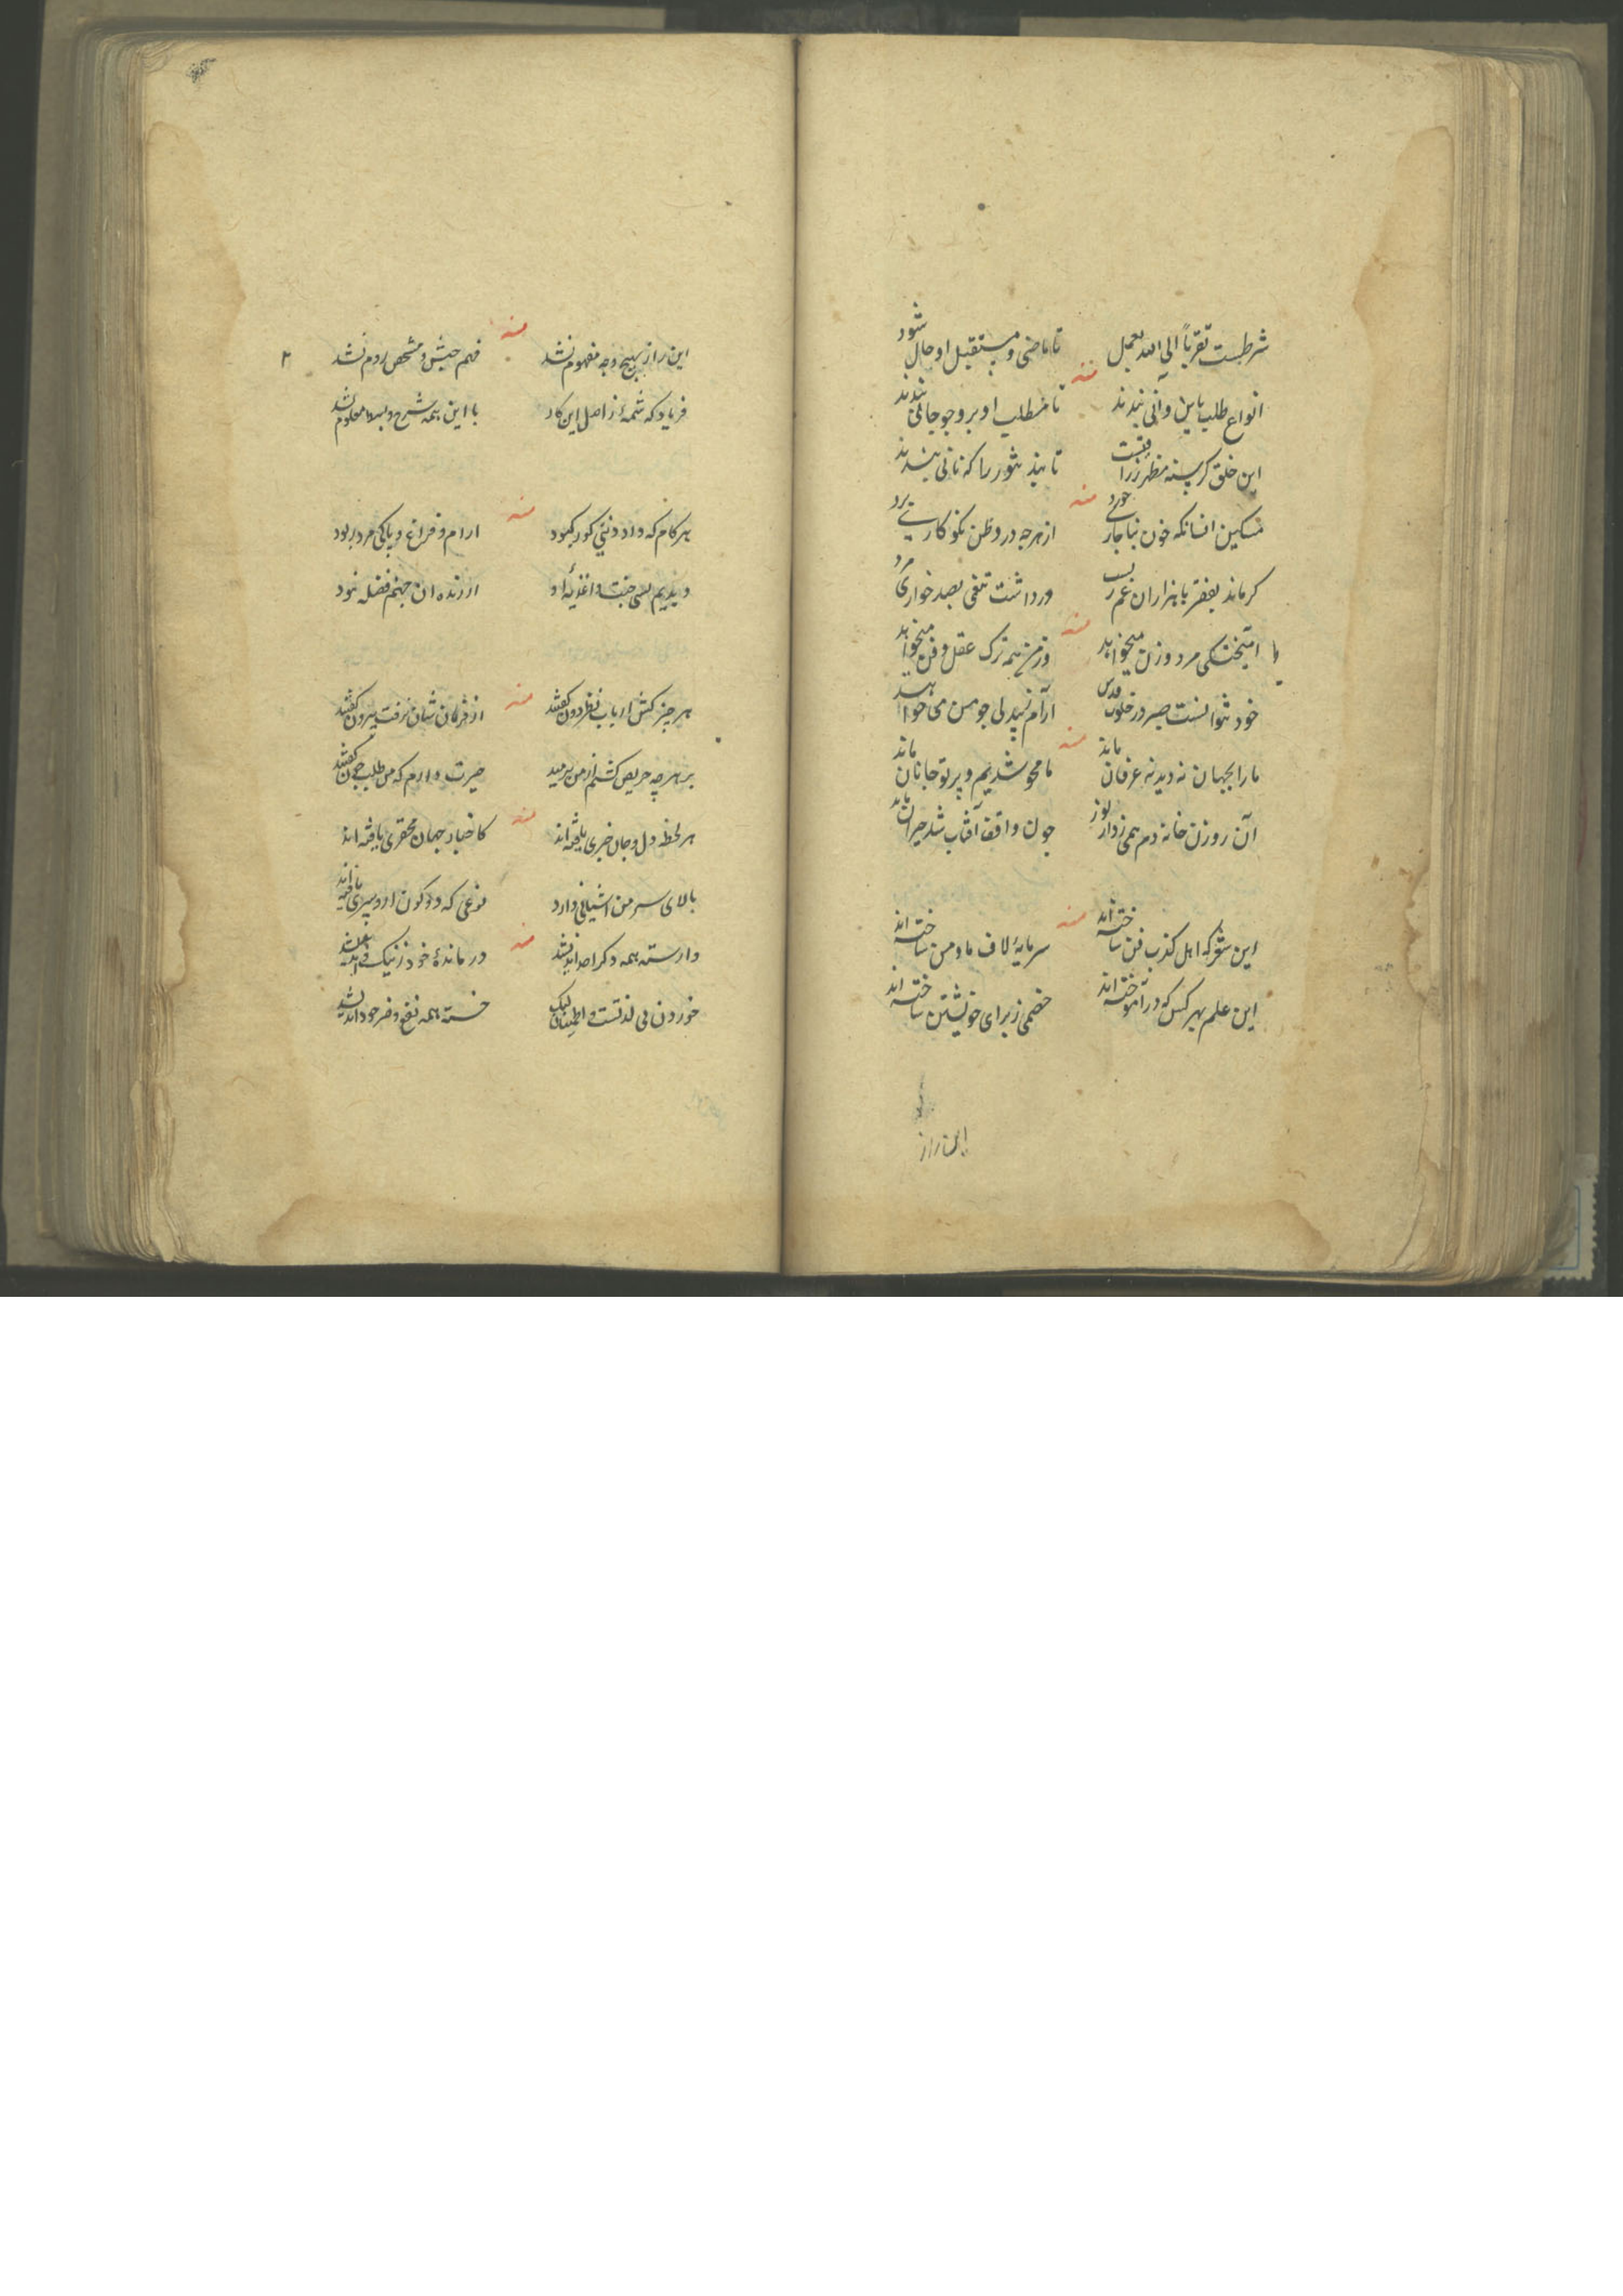 شرطست تقرباً الی الله بعمل تا ماضی و مستقبل او حال شود
منه
انواع طلب باین و آنی بندند تا مطلب او بر وجوه جانی بندند
این خلق کرسنه مظهر رزا تا پند را که نانی بندند
منه
مسکین انسانکه خون بناجاری خورد از هرچه درو ظن نکو کاری برد
کر ماند بفقر با هزاران غم زیست ور داشت تنفی بصد خواری مرد
منه
با امیختکی مرد و زن میخواهد وز من همه ترک عقل و فن میخواهد
خود نتوانست صبر در خلوت قدس آرام ز بیدلی چو من می خواهد
منه
ما را بجهان نه دید نه عرفان ماند ما محو شدیم و پرتو جانان ماند
آن روزن خانه دم همی زد از نور چون واقف آفتاب شد حیران ماند
منه
این شعر که اهل کذب فن ساخته اند سرمایهٔ لاف ما و من ساخته اند
این علم بهر کس که در آموخته اند خصمی ز برای خویشتن ساخته اند
این راز
این راز بهیچ وجه مفهوم نشد فهم حبش و مشخص روم نشد
منه
فریاد که شمهٔ ز اصل این کار با این همه شرح و بسط معلوم نشد
هر کام که داد دنیی کور کبود ارام و فراغ و پاکی مرد ربود
منه
دیدیم بسی جنت و اغذیهٔ او از زنده ان جهنم فضله نبود
هر چیز کش ارباب نظر دون کفتند از فرمان شان نرفت بیرون کفتند
منه
بر هرچه حریص کشتم از من برمید حیرت دارم که من طلب چون کفتند
هر لحظه دل و جان خبری یافته اند کاخبار جهان محقری یافته اند
منه
بالای سر من اشیانی دارد نوعی که دو کون ازو پری یافته اند
وارسته همه دکر اصد اندیشد درماندهٔ خود ز نیک و بد اندیشد
منه
خوردن پی لذتست و اطمینان لیک خسته همه نفع و ضر خود اندیشد